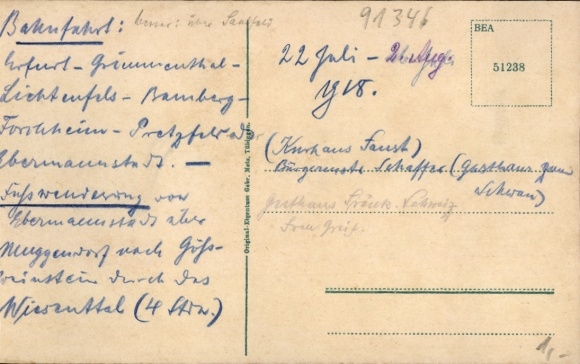 Bahnfahrt: besser: über Saalfeld
Erfurt - Grimmenthal -
Lichtenfels - Bamberg -
Forchheim - Pretzfeld oder
Ebermannstadt. -
Fußwanderung von
Ebermannstadt über
Muggendorf nach Göss-
weinstein durch das
Wiesenttal (4 Std.)
Original-Eigentum Gebr. Metz, Tübingen.
91346
22 Juli -
1918.
BEA
51238
(Kurhaus Faust)
Bürgermstr Schaffer (Gasthaus zum
Schwan)
Gasthaus Fränk. Schweiz
1,-